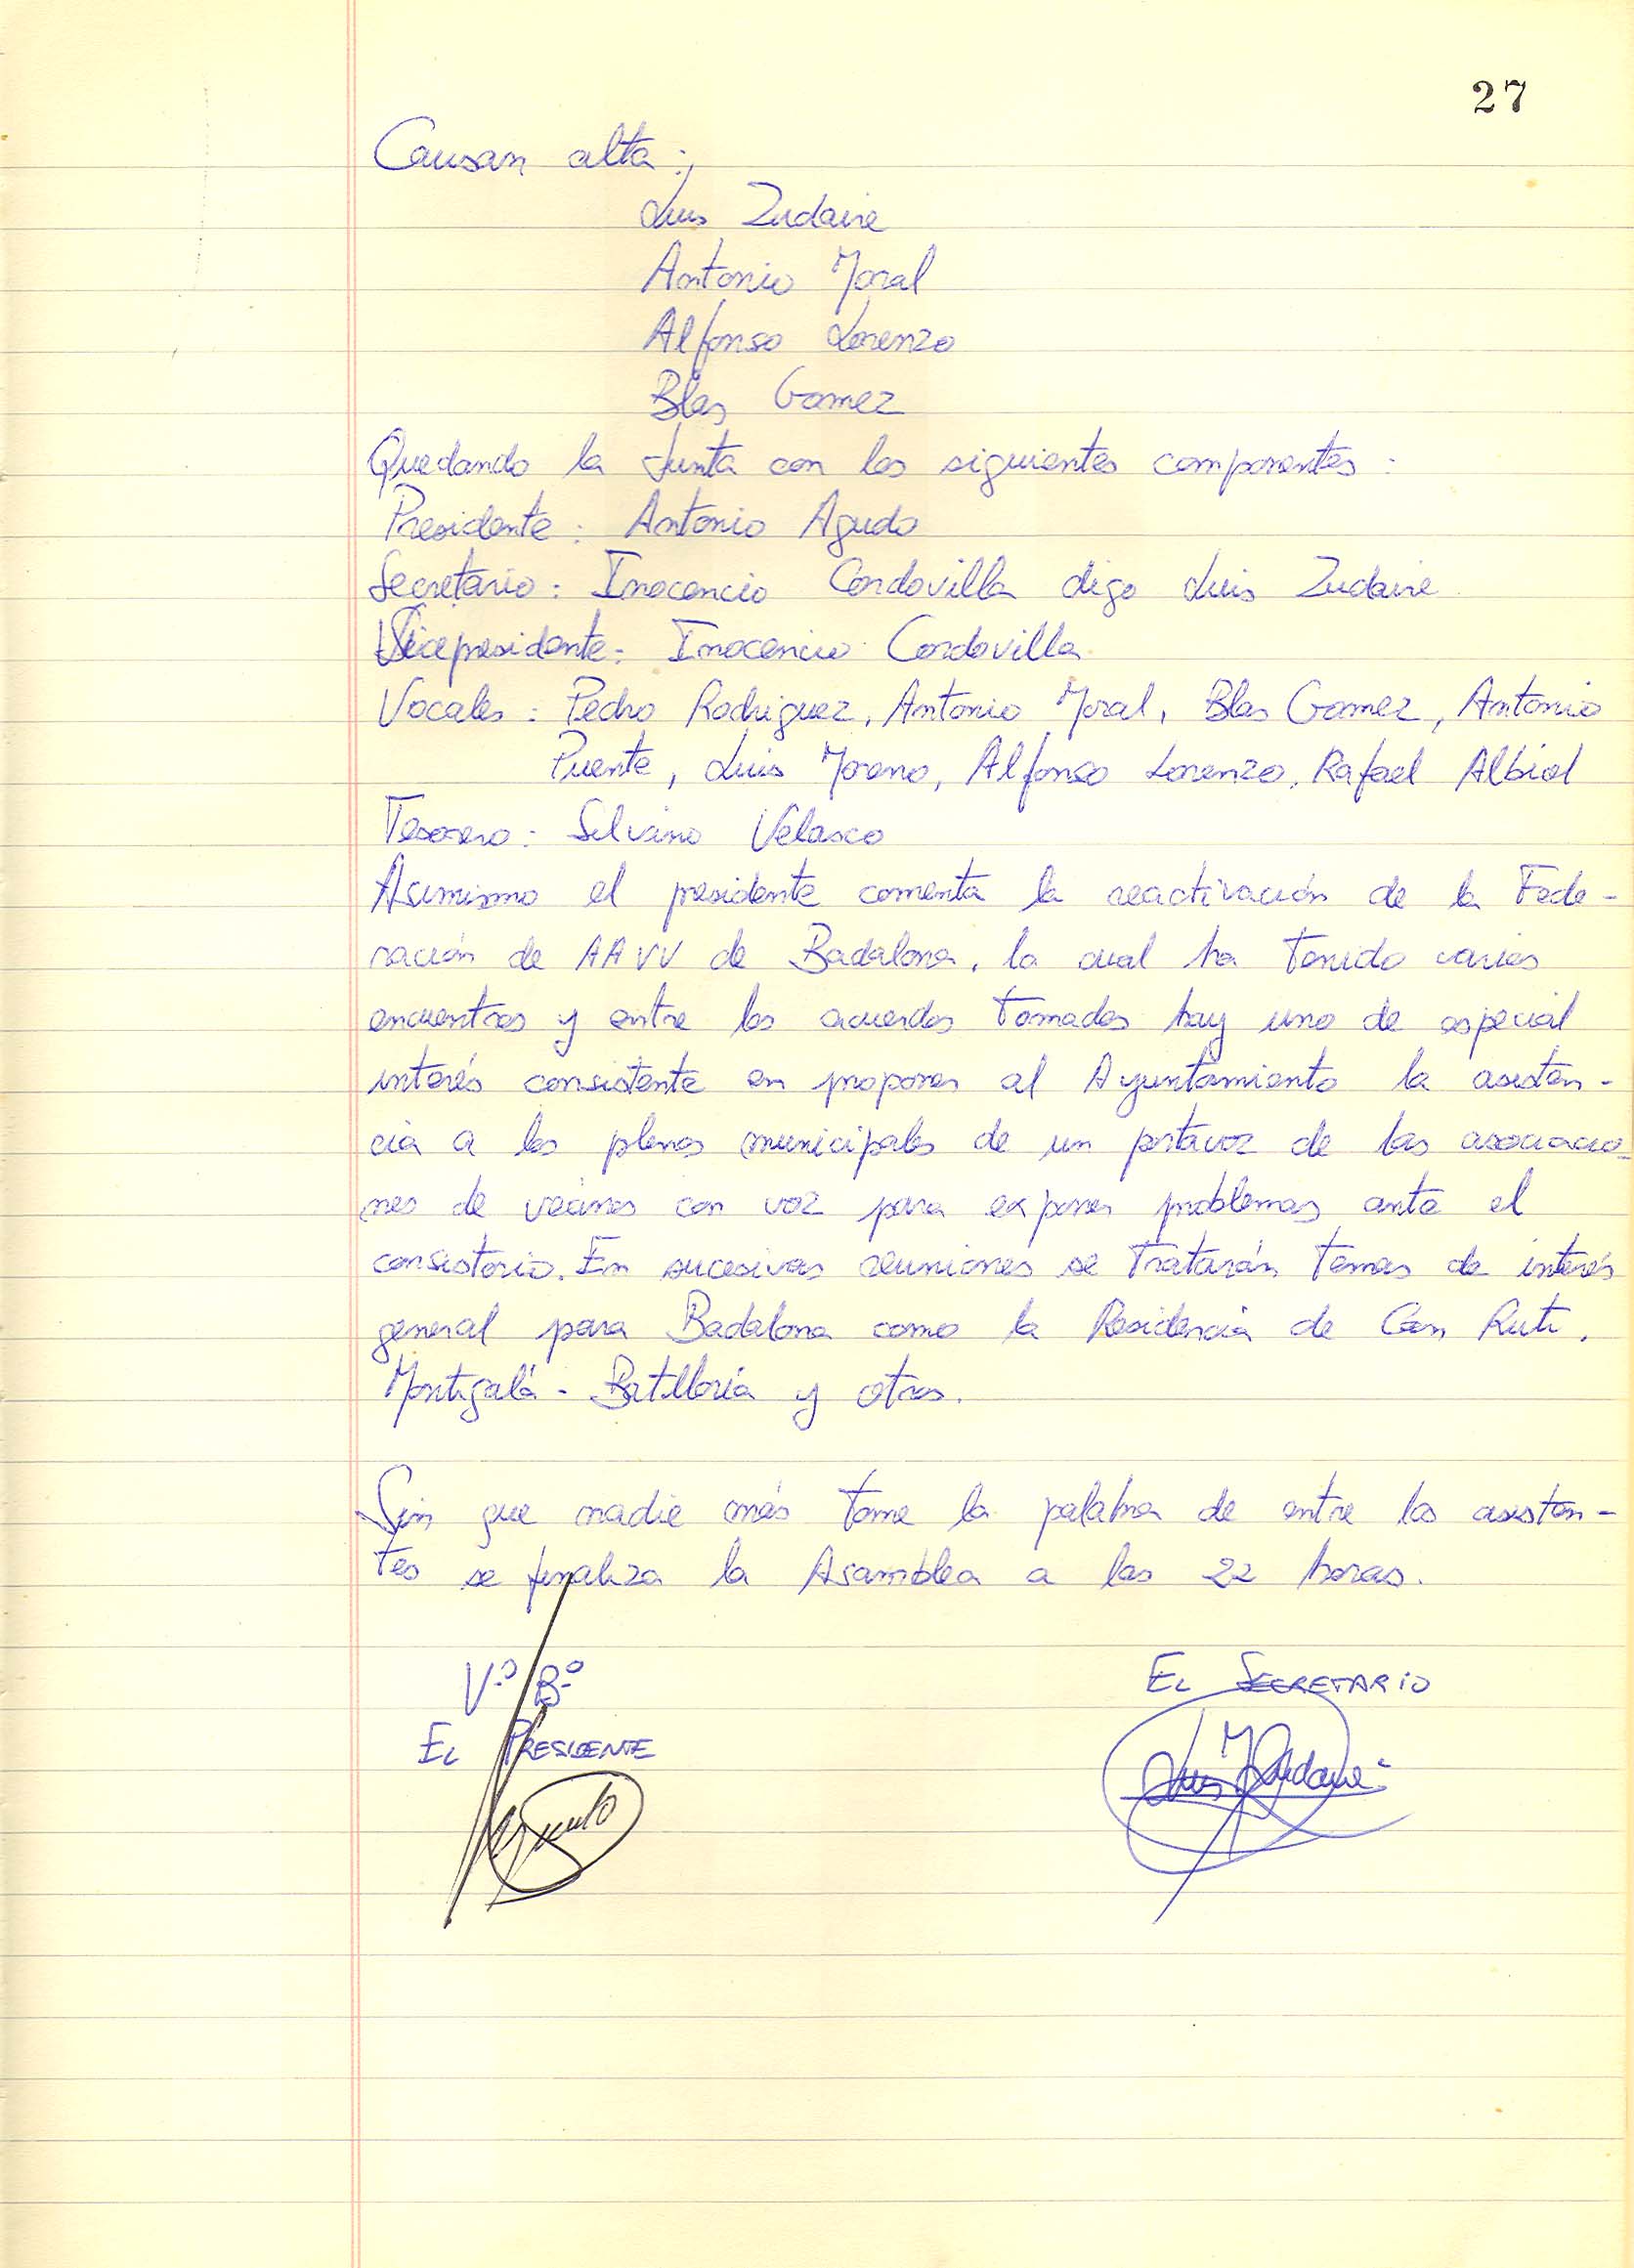 27
Causan alta :
Luis Zudaire
Antonio Moral
Alfonso Lorenzo
Blas Gomez
Quedando la Junta con los siguientes componentes :
Presidente : Antonio Agudo
Secretario : Inocencio Cordovilla digo Luis Zudaire
Vicepresidente : Inocencio Cordovilla
Vocales : Pedro Rodriguez, Antonio Moral, Blas Gomez, Antonio
Puente, Luis Moreno, Alfonso Lorenzo, Rafael Albiol
Tesorero : Silvino Velasco
Asimismo el presidente comenta la reactivación de la Fede-
ración de AAVV de Badalona, la cual ha tenido varios
encuentros y entre los acuerdos tomados hay uno de especial
interés consistente en proponer al Ayuntamiento la asisten-
cia a los plenos municipales de un portavoz de las asociacio-
nes de vecinos con voz para exponer problemas ante el
consistorio. En sucesivas reuniones se tratarán temas de interés
general para Badalona como la Residencia de Can Ruti,
Montigalá - Batlloria y otros.
Sin que nadie más tome la palabra de entre los asisten-
tes se finaliza la Asamblea a las 22 horas.
Vº Bº
EL SECRETARIO
EL PRESIDENTE
Agudo
Luis M Zudaire